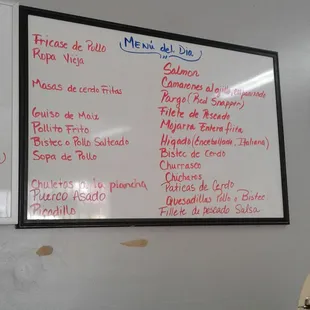 Menú del Dia
Fricase de Pollo
Ropa Vieja
Masas de cerdo Fritas
Guiso de Maiz
Pollito Frito
Bistec o Pollo Salteado
Sopa de Pollo
Chuletas a la plancha
Puerco Asado
Picadillo
Salmon
Camarones al ajillo, Enpanizado
Pargo (Red Snapper)
Filete de Pescado
Mojarra Entera frita
Higado (Encebollado, Italiana)
Bistec de Cerdo
Churrasco
Chicharos
Paticas de Cerdo
Quesadillas Pollo o Bistec
Fillete de pescado Salsa